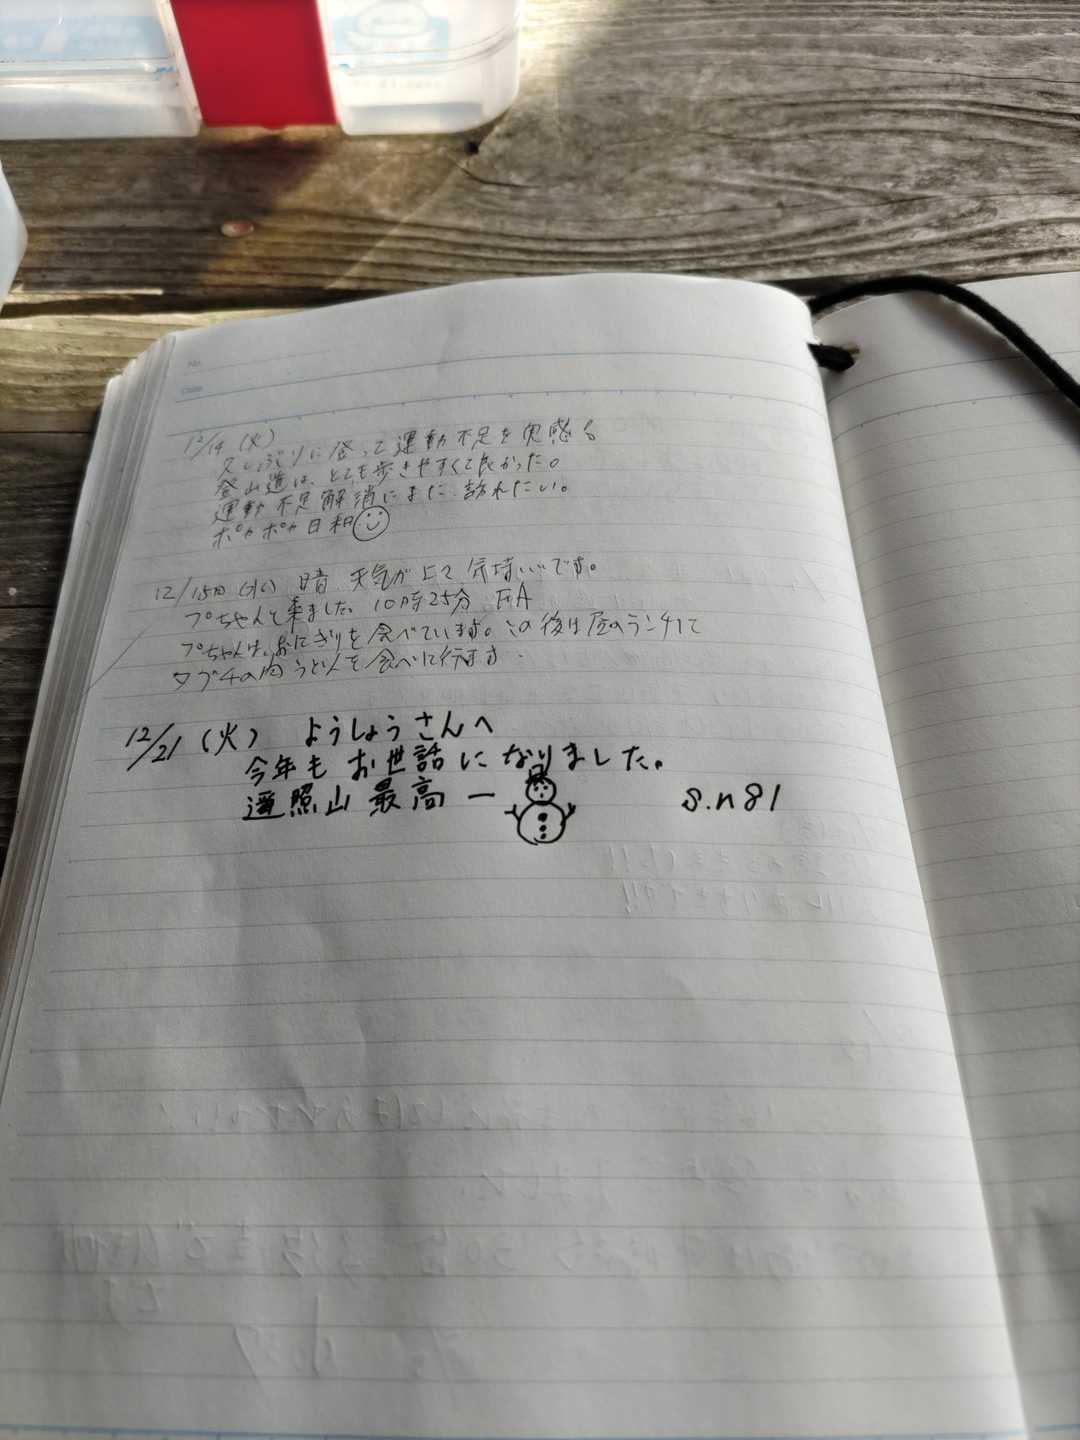 No.
Date
12/14 (火)
久しぶりに登って運動不足を実感る
登山道は、とても歩きやすくて良かった。
運動不足解消にまた訪れたい。
ポカポカ日和
12/15日(水) 晴 天気が上々 気持いいです。
プちゃんと来ました 10時25分 F.A
プちゃんは、おにぎりを食べています。この後は昼のランチして
タブチの肉うどんを食べに行ます
12/21 (火) ようしょうさんへ
今年もお世話になりました。
遥照山 最高ー
S.n 81